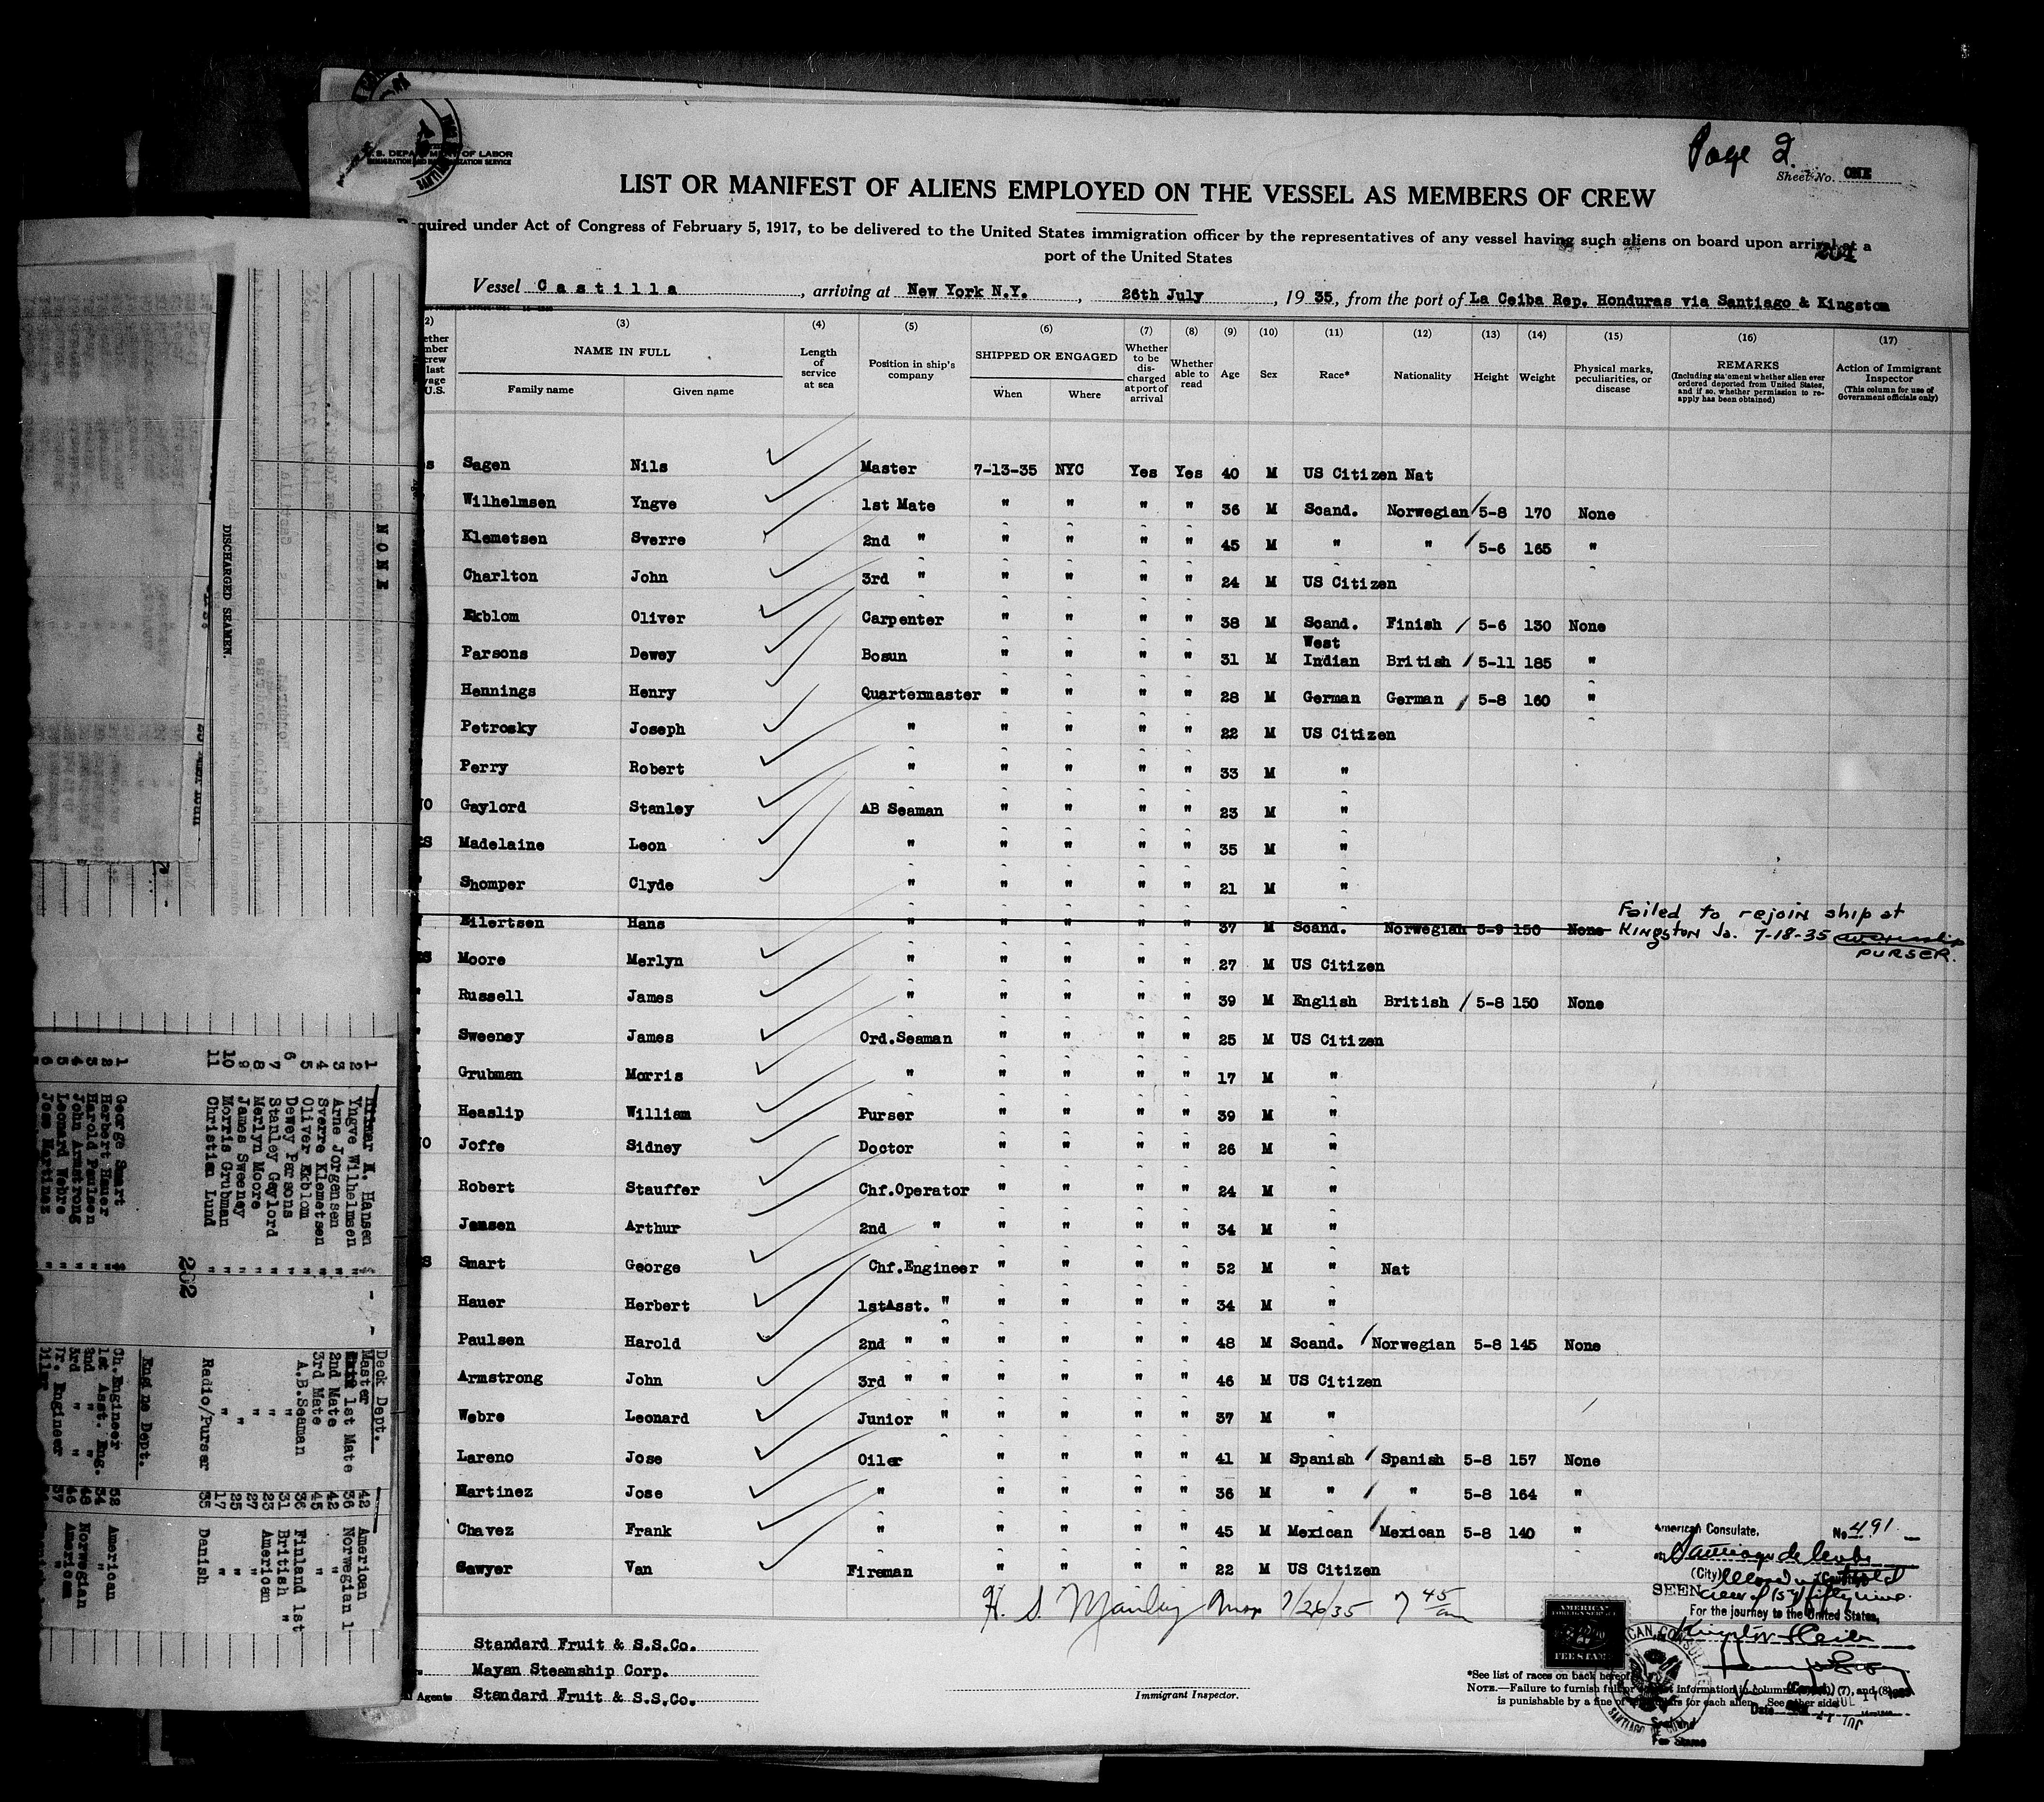 Page 2.
U.S. DEPARTMENT OF LABOR
IMMIGRATION AND NATURALIZATION SERVICE
Sheet No. ONE
LIST OR MANIFEST OF ALIENS EMPLOYED ON THE VESSEL AS MEMBERS OF CREW
Required under Act of Congress of February 5, 1917, to be delivered to the United States immigration officer by the representatives of any vessel having such aliens on board upon arrival at a
port of the United States
204
Vessel Castilla, arriving at New York N.Y., 26th July, 1935, from the port of La Ceiba Rep. Honduras via Santiago & Kingston
(2) (3) (4) (5) (6) (7) (8) (9) (10) (11) (12) (13) (14) (15) (16) (17)
NAME IN FULL
Family name Given name
Length of service at sea
Position in ship's company
SHIPPED OR ENGAGED
When Where
Whether to be discharged at port of arrival
Whether able to read
Age Sex Race* Nationality Height Weight
Physical marks, peculiarities, or disease
REMARKS
(Including statement whether alien ever ordered deported from United States, and if so, whether permission to reapply has been obtained)
Action of Immigrant Inspector
(This column for use of Government officials only)
Sagen Nils Master 7-13-35 NYC Yes Yes 40 M US Citizen Nat
Wilhelmsen Yngve 1st Mate " " " " 36 M Scand. Norwegian 5-8 170 None
Klemetsen Sverre 2nd " " " " " 45 M " " 5-6 165 "
Charlton John 3rd " " " " " 24 M US Citizen
Ekblom Oliver Carpenter " " " " 38 M Scand. Finish 5-6 130 None
Parsons Dewey Bosun " " " " 31 M West Indian British 5-11 185 "
Hennings Henry Quartermaster " " " " 28 M German German 5-8 160 "
Petrosky Joseph " " " " " 22 M US Citizen
Perry Robert " " " " " 33 M "
Gaylord Stanley AB Seaman " " " " 23 M "
Madelaine Leon " " " " " 35 M "
Shomper Clyde " " " " " 21 M "
Eilertsen Hans " " " " " 37 M Scand. Norwegian 5-9 150 None Failed to rejoin ship at
Kingston Ja. 7-18-35
PURSER.
Moore Merlyn " " " " " 27 M US Citizen
Russell James " " " " " 39 M English British 5-8 150 None
Sweeney James Ord.Seaman " " " " 25 M US Citizen
Grubman Morris " " " " " 17 M "
Heaslip William Purser " " " " 39 M "
Joffe Sidney Doctor " " " " 26 M "
Robert Stauffer Chf.Operator " " " " 24 M "
Jensen Arthur 2nd " " " " " 34 M "
Smart George Chf.Engineer " " " " 52 M " Nat
Hauer Herbert 1stAsst. " " " " " 34 M "
Paulsen Harold 2nd " " " " " " 48 M Scand. Norwegian 5-8 145 None
Armstrong John 3rd " " " " " " 46 M US Citizen
Webre Leonard Junior " " " " " 37 M "
Lareno Jose Oiler " " " " 41 M Spanish Spanish 5-8 157 None
Martinez Jose " " " " " 36 M " " 5-8 164 "
Chavez Frank " " " " " 45 M Mexican Mexican 5-8 140 "
Sawyer Van Fireman " " " " 22 M US Citizen
7/26/35 7 45 am
Standard Fruit & S.S.Co.
Mayan Steamship Corp.
Agents Standard Fruit & S.S.Co.
Immigrant Inspector.
American Consulate, No 491
Santiago de Cuba
(City)
SEEN
For the journey to the United States,
AMERICAN
FOREIGN SERVICE
FEE STAMP
*See list of races on back hereof.
NOTE.—Failure to furnish full or information in columns (7), and (8)
is punishable by a fine of for each alien. See other side.
Date
NONE
DISCHARGED SEAMEN.
Deck Dept.
1 Hitmar M. Hansen " Master 42 American
2 Yngve Wilhelmsen " 1st Mate 36 Norwegian
3 Arne Jorgensen " 2nd Mate 42 "
4 Sverre Klemetsen " 3rd Mate 45 "
5 Oliver Ekblom " A.B.Seaman 36 Finland
6 Dewey Parsons " " 31 British
7 Stanley Gaylord " " 23 American
8 Merlyn Moore " " 27 "
9 James Sweeney " " 25 "
10 Morris Grubman " " 17 "
11 Christian Lund " Radio/Purser 35 Danish
202
Engine Dept.
1 George Smart " Ch.Engineer 52 American
2 Herbert Hauer " 1st Asst. Eng. 34 "
3 Harold Paulsen " 2nd " " 48 Norwegian
4 John Armstrong " 3rd " " 46 American
5 Leonard Webre " Jr. Engineer 37 "
6 Jose Martinez " Oiler